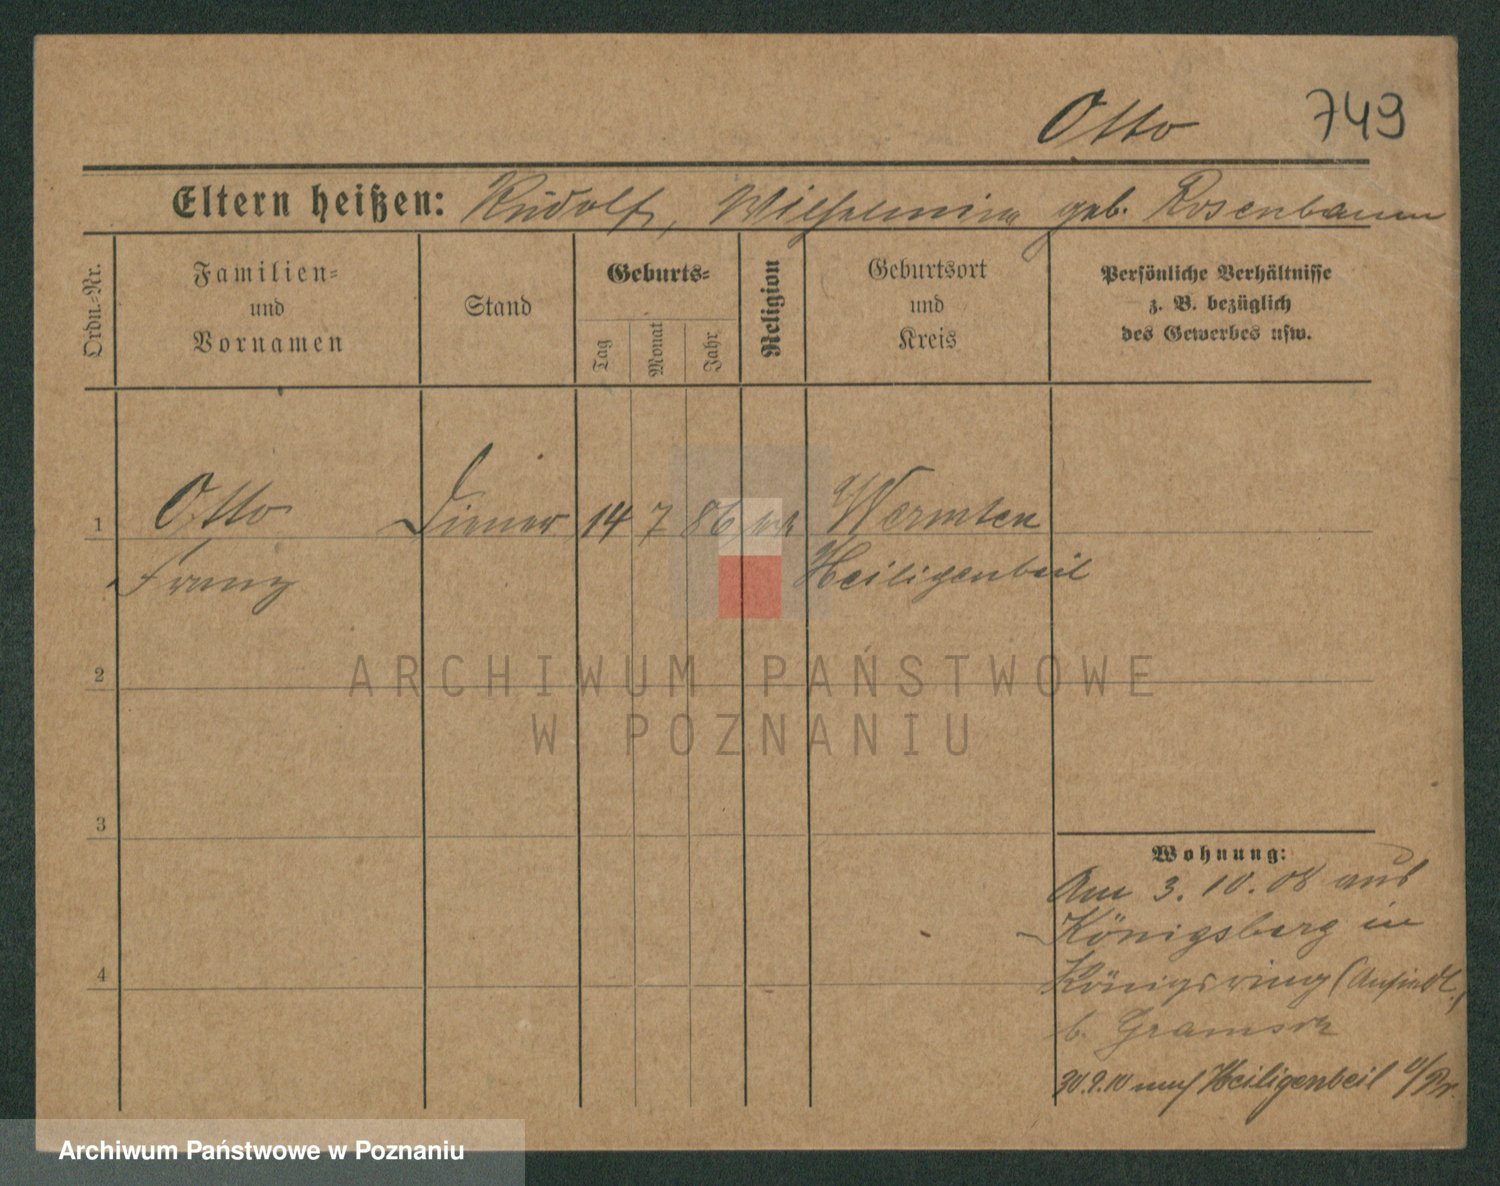 Otto 749
Eltern heißen: Rudolf, Wilhelmine geb. Rosenbaum
Ordn.-Nr.
Familien-
und
Vornamen
Stand
Geburts-
Tag
Monat
Jahr
Religion
Geburtsort
und
Kreis
Persönliche Verhältnisse
z. B. bezüglich
des Gewerbes usw.
1 Otto Diener 14 7 86 Wermten
Franz Heiligenbeil
2
3
4
Wohnung:
Am 3.10.08 aus
Königsberg in
Königsring (Ansiedl.)
b.
30.9.10 nach Heiligenbeil o/Pr.
ARCHIWUM PAŃSTWOWE
W POZNANIU
Archiwum Państwowe w Poznaniu